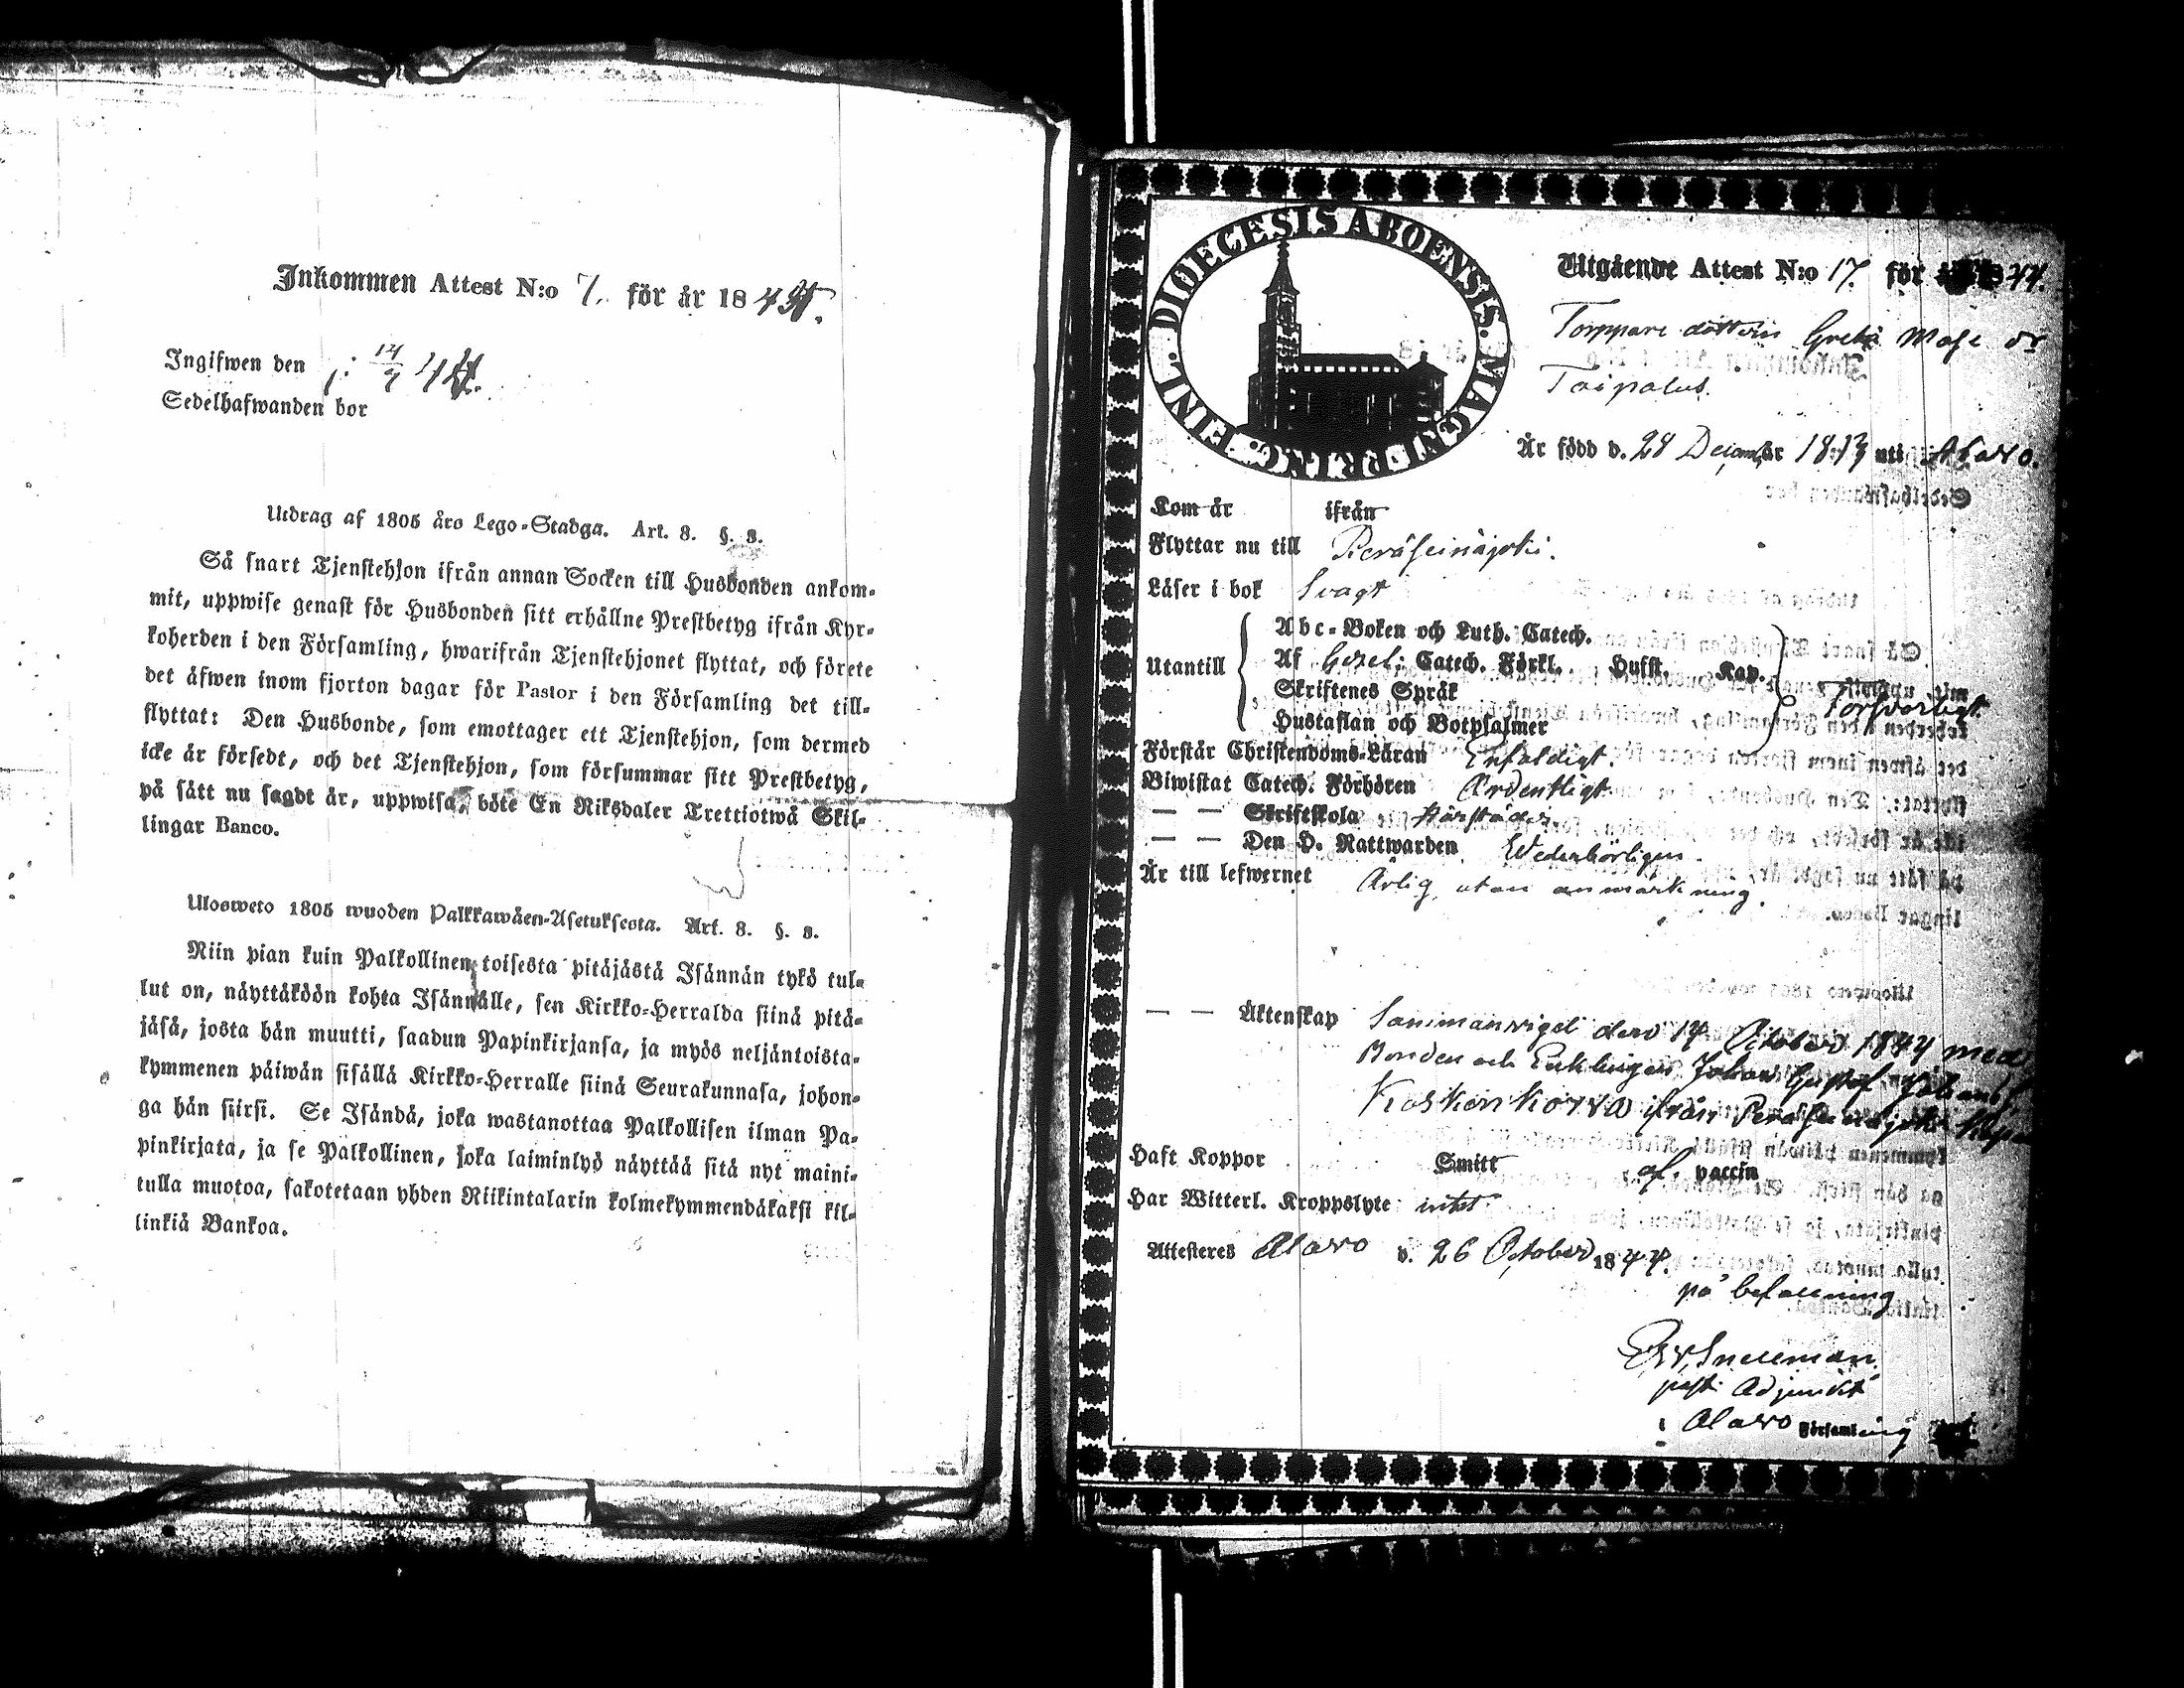 Inkommen Attest N:o 7. för år 184
Ingifwen den
Sedelhafwanden bor
Utdrag af 1805 års Lego-Stadga. Art. 8. §. 3.
Så snart Tjenstehjon ifrån annan Socken till Husbonden ankom-
mit, uppwise genast för Husbonden sitt erhållne Prestbetyg ifrån Kyr-
koherden i den Församling, hwarifrån Tjenstehjonet flyttat, och förete
det äfwen inom fjorton dagar för Pastor i den Församling det till-
flyttat: Den Husbonde, som emottager ett Tjenstehjon, som dermed
icke är försedt, och det Tjenstehjon, som försummar sitt Prestbetyg,
på sätt nu sagdt är, uppwisa, böte En Riksdaler Trettiotwå Skil-
lingar Banco.
Ulosweto 1805 wuoden Palkkawäen-Asetuksesta. Art. 8. §. 3.
Niin pian kuin Palkollinen toisesta pitäjästä Isännän tykö tul-
lut on, näyttäköön kohta Isännälle, sen Kirkko-Herralda siinä pitä-
jäsä, josta hän muutti, saadun Papinkirjansa, ja myös neljäntoista-
kymmenen päiwän sisällä Kirkko-Herralle siinä Seurakunnasa, johon-
ga hän siirsi. Se Isändä, joka wastanottaa Palkollisen ilman Pa-
pinkirjata, ja se Palkollinen, joka laiminlyö näyttää sitä nyt maini-
tulla muotoa, sakotetaan yhden Riikintalarin kolmekymmendäkaksi kil-
linkiä Bankoa.
DIOECESIS ABOENSIS. MAGNI PRINC. FINL.
Utgående Attest N:o 17. för 44.
Torppare dottern Greta Maja
Taipalus.
Är född d. 28 Decemb. år 1813 uti Alavo.
Kom år ifrån
Flyttar nu till Peräseinäjoki.
Läser i bok Svagt
Utantill
Abc-Boken och Luth. Catech.
Af Gezel: Catech. Förkl. Husst. Kap.
Skriftenes Språk
Hustaflan och Botpsalmer
Försvarligt.
Förstår Christendoms-Läran Enfaldigt.
Biwistat Catech. Förhören Ordentligt
— — Skriftskola
— — Den H. Nattwarden Wederbörligen.
Är till lefwernet Ärlig, utan anmärkning.
— — Äktenskap Sammanvigd den 14 October 1844 med
Bonden och Enklingen Johan Gustaf
Koskenkorva ifrån Peräseinäjoki
Haft Koppor Smitt af vaccin
Har Witterl. Kroppslyte intet
Attesteres Alavo d. 26 October 1844.
på befallning
Snellman
past: Adjunct
i Alavo Församling